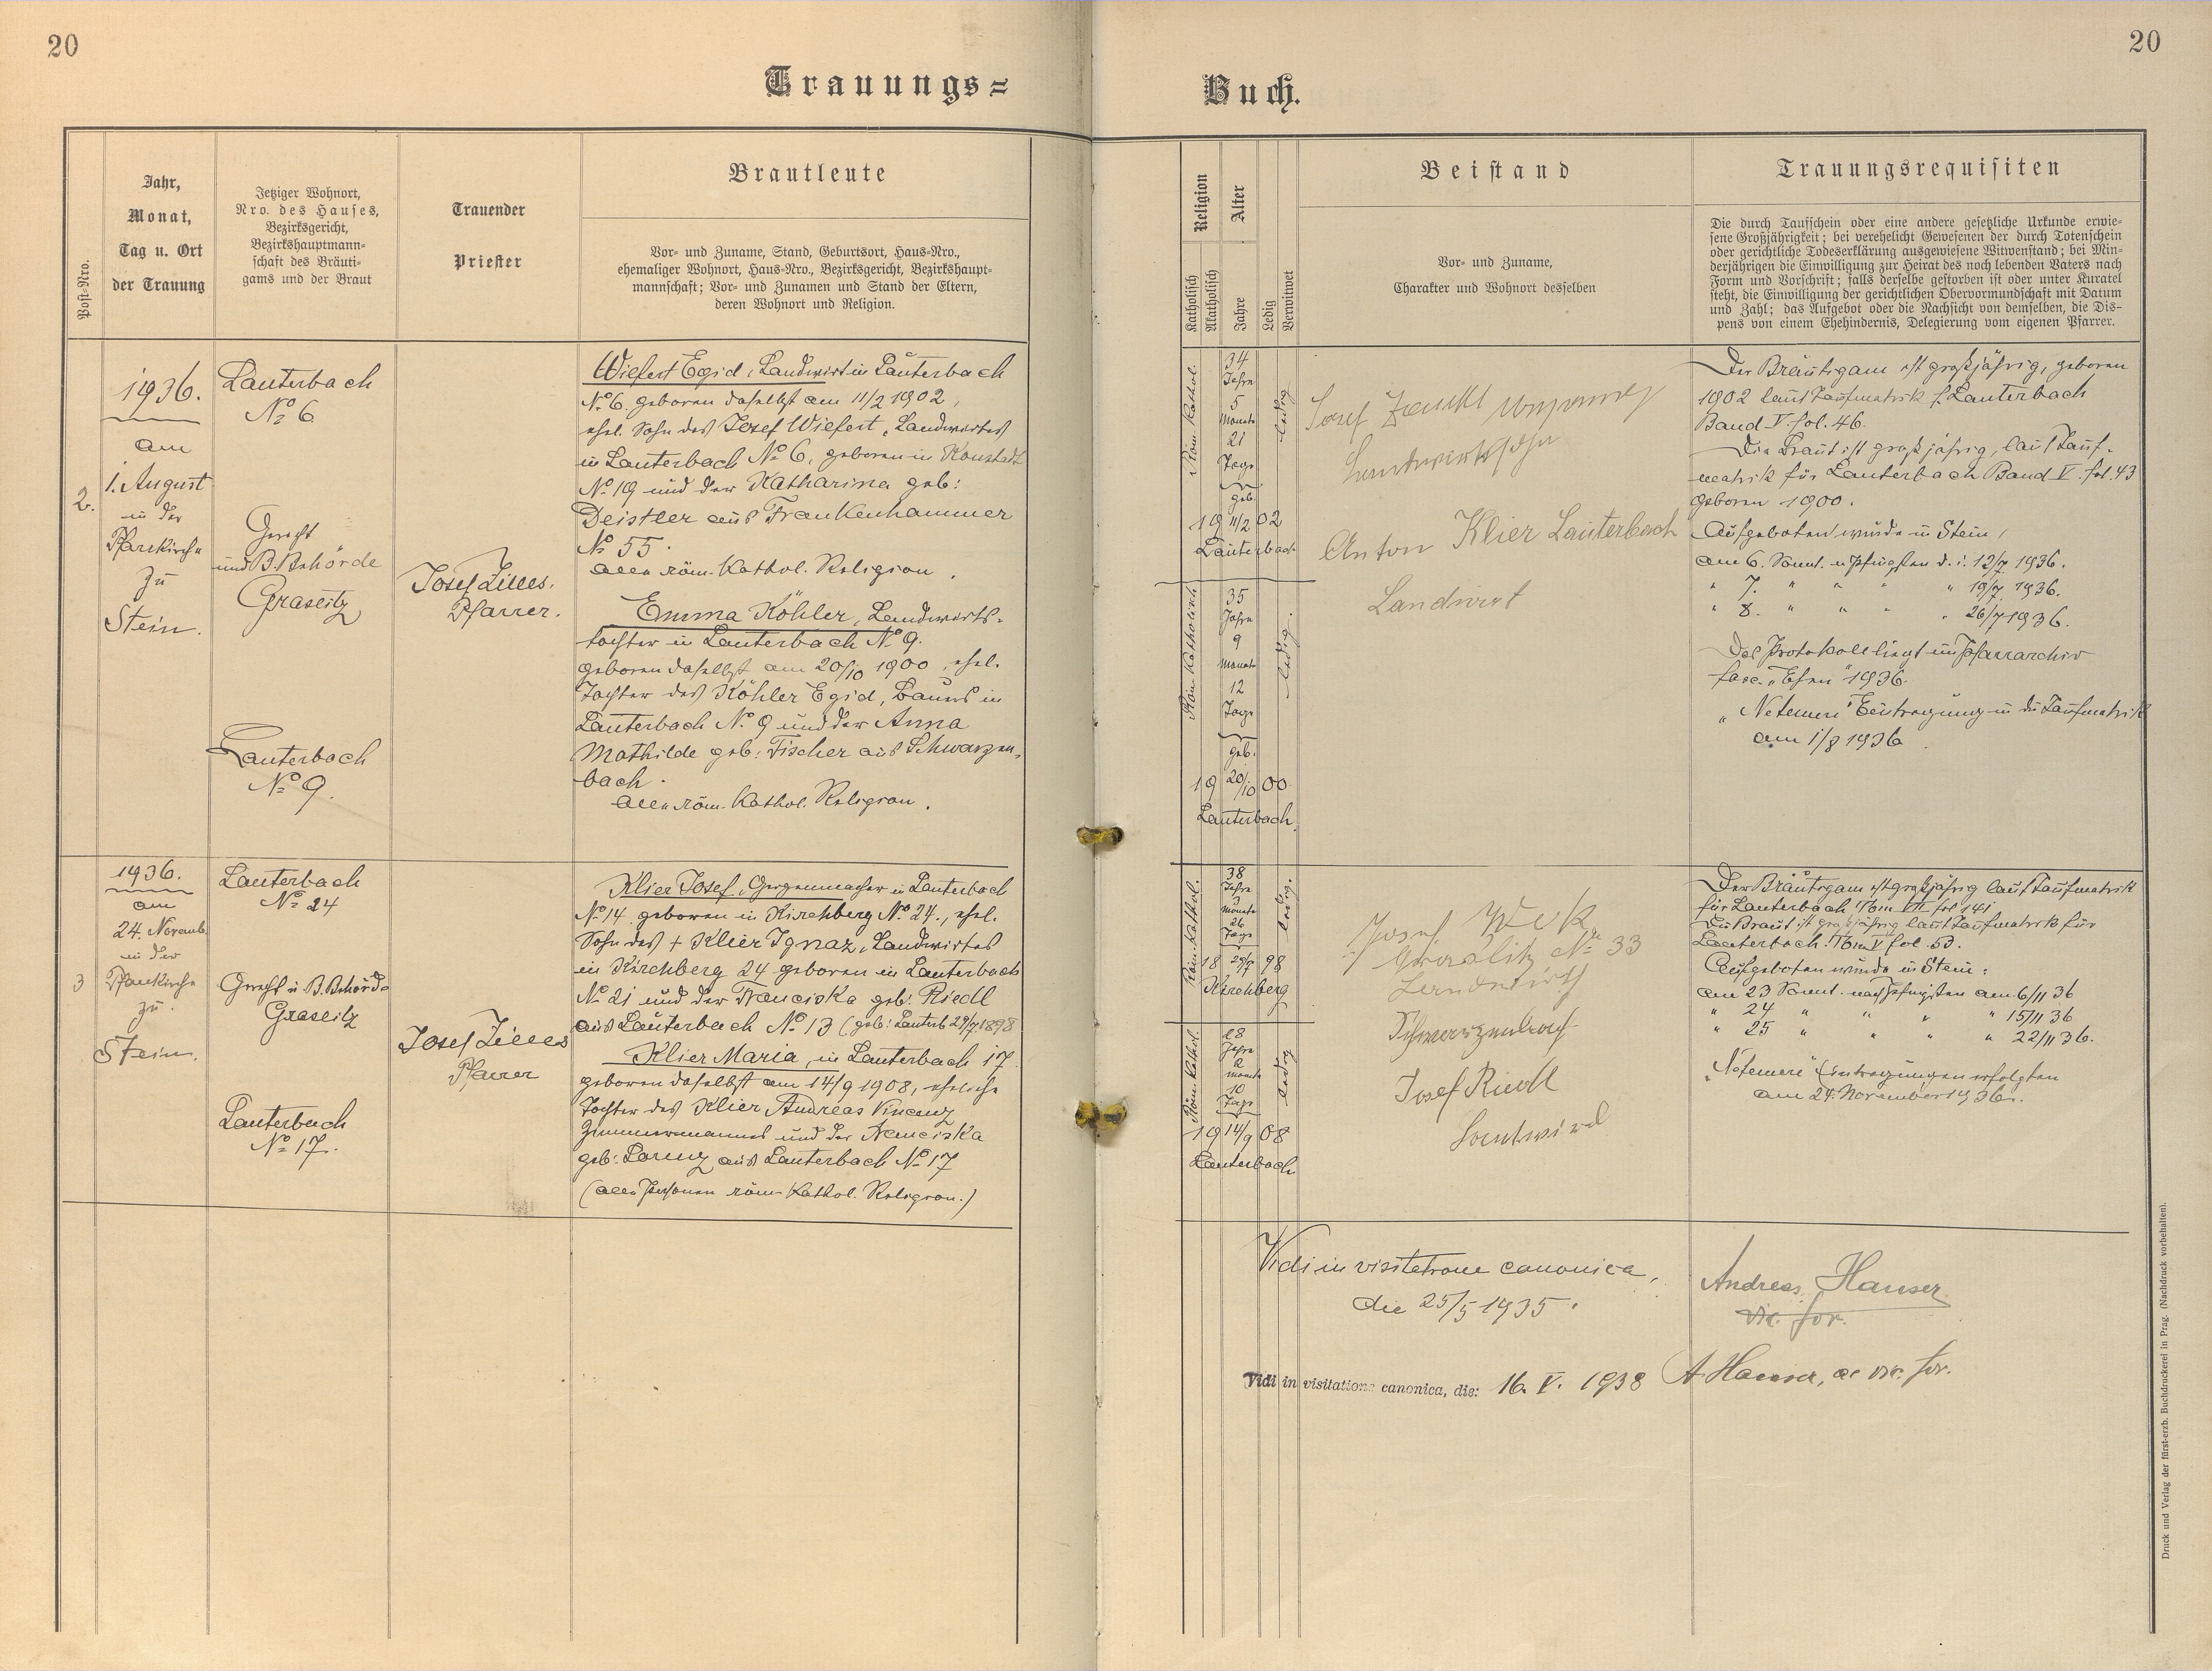 20
20
Trauungs=
Buch.
Post-Nro.
Jahr,
Monat,
Tag u. Ort
der Trauung
Jetziger Wohnort,
Nro. des Hauses,
Bezirksgericht,
Bezirkshauptmann-
schaft des Bräuti-
gams und der Braut
Trauender
Priester
Brautleute
Vor- und Zuname, Stand, Geburtsort, Haus-Nro.,
ehemaliger Wohnort, Haus-Nro., Bezirksgericht, Bezirkshaupt-
mannschaft; Vor- und Zunamen und Stand der Eltern,
deren Wohnort und Religion.
Religion
Katholisch
Akatholisch
Alter
Jahre
Ledig
Verwitwet
Beistand
Vor- und Zuname,
Charakter und Wohnort desselben
Trauungsrequisiten
Die durch Taufschein oder eine andere gesetzliche Urkunde erwie-
sene Großjährigkeit; bei verehelicht Gewesenen der durch Totenschein
oder gerichtliche Todeserklärung ausgewiesene Witwenstand; bei Min-
derjährigen die Einwilligung zur Heirat des noch lebenden Vaters nach
Form und Vorschrift; falls derselbe gestorben ist oder unter Kuratel
steht, die Einwilligung der gerichtlichen Obervormundschaft mit Datum
und Zahl; das Aufgebot oder die Nachsicht von demselben, die Dis-
pens von einem Ehehindernis, Delegierung vom eigenen Pfarrer.
2.
1936.
am
1. August
in der
Pfarrkirche
zu
Stein.
Lauterbach
No 6
Gericht
und B. Behörde
Graslitz
Lauterbach
No 9.
Josef Zilles,
Pfarrer.
Wiefert Egid, Landwirt in Lauterbach
No 6. geboren daselbst am 11/2 1902,
ehel. Sohn des Josef Wiefert, Landwirtes
in Lauterbach No 6, geboren in Konstadt
No 19 und der Katharina geb:
Deistler aus Frankenhammer
No 55.
alle röm. Kathol. Religion.
Emma Köhler, Landwirts-
tochter in Lauterbach No 9.
geboren daselbst am 20/10 1900, ehel.
Tochter des Köhler Egid, Bauers in
Lauterbach No 9 und der Anna
Mathilde geb: Fischer aus Schwarzen-
bach.
alle röm. Kathol. Religion.
Röm. Kathol.
34
Jahre
5
Monate
21
Tage
geb.
19 11/2 02
Lauterbach
ledig
Röm. Katholisch
35
Jahre
9
Monate
12
Tage
geb.
19 20/10 00
Lauterbach.
ledig.
Josef
Landwirtssohn
Anton Klier Lauterbach
Landwirt
Der Bräutigam ist großjährig, geboren
1902 laut Taufmatrik f. Lauterbach
Band V. fol. 46.
Die Braut ist großjährig, laut Tauf-
matrik für Lauterbach Band V. fol. 43
geboren 1900.
Aufgeboten wurde in Stein,
am 6. Sonnt. n. Pfingsten d. i. 12/7 1936.
" 7. " " " 19/7 1936.
" 8. " " " 26/7 1936.
Das Protokoll liegt im Pfarrarchiv
fasc. "Ehen" 1936.
"Ne temere" Eintragung in die Taufmatrik
am 1/8 1936.
3
1936.
am
24. Novemb.
in der
Pfarrkirche
zu
Stein.
Lauterbach
No 24
Gericht u. B. Behörde
Graslitz
Lauterbach
No 17.
Josef Zilles
Pfarrer
Klier Josef, Geigenmacher in Lauterbach
No 14. geboren in Kirchberg No 24., ehel.
Sohn des + Klier Ignaz, Landwirtes
in Kirchberg 24 geboren in Lauterbach
No 21 und der Franciska geb: Riedl
aus Lauterbach No 13 (geb: Lauterb 29/7. 1898
Klier Maria, in Lauterbach 17
geboren daselbst am 14/9 1908, eheliche
Tochter des Klier Andreas Vincenz
Zimmermannes und der Franciska
geb: Lorenz aus Lauterbach No 17
(alle Personen röm. Kathol. Religion.)
Röm. Kathol.
38
Jahre
3
Monate
26
Tage
18 29/7 98
Kirchberg
ledig.
Röm. Kathol.
28
Jahre
2
Monate
10
Tage
19 14/9 08
Lauterbach
ledig
Josef
No 33
Landwirth
Schwarzenbach
Josef Riedl
Landwird
Der Bräutigam ist großjährig laut Taufmatrik
für Lauterbach Tom VII fol 141
Die Braut ist großjährig laut Taufmatrik für
Lauterbach. Tom V fol. 53.
Aufgeboten wurde in Stein:
am 23 Sonnt. nach Pfingsten am 6/11 36
" 24 " " " " 15/11 36
" 25 " " " " 22/11 36.
"Ne temere" Eintragungen erfolgten
am 24. November 1936.
Vidi in visitatione canonica,
die 25/5 1935.
Andreas Hanser
vic. for.
Vidi in visitatione canonica, die: 16. V. 1938
A Hanser, vic. for.
Druck und Verlag der fürst-erzb. Buchdruckerei in Prag. (Nachdruck vorbehalten).